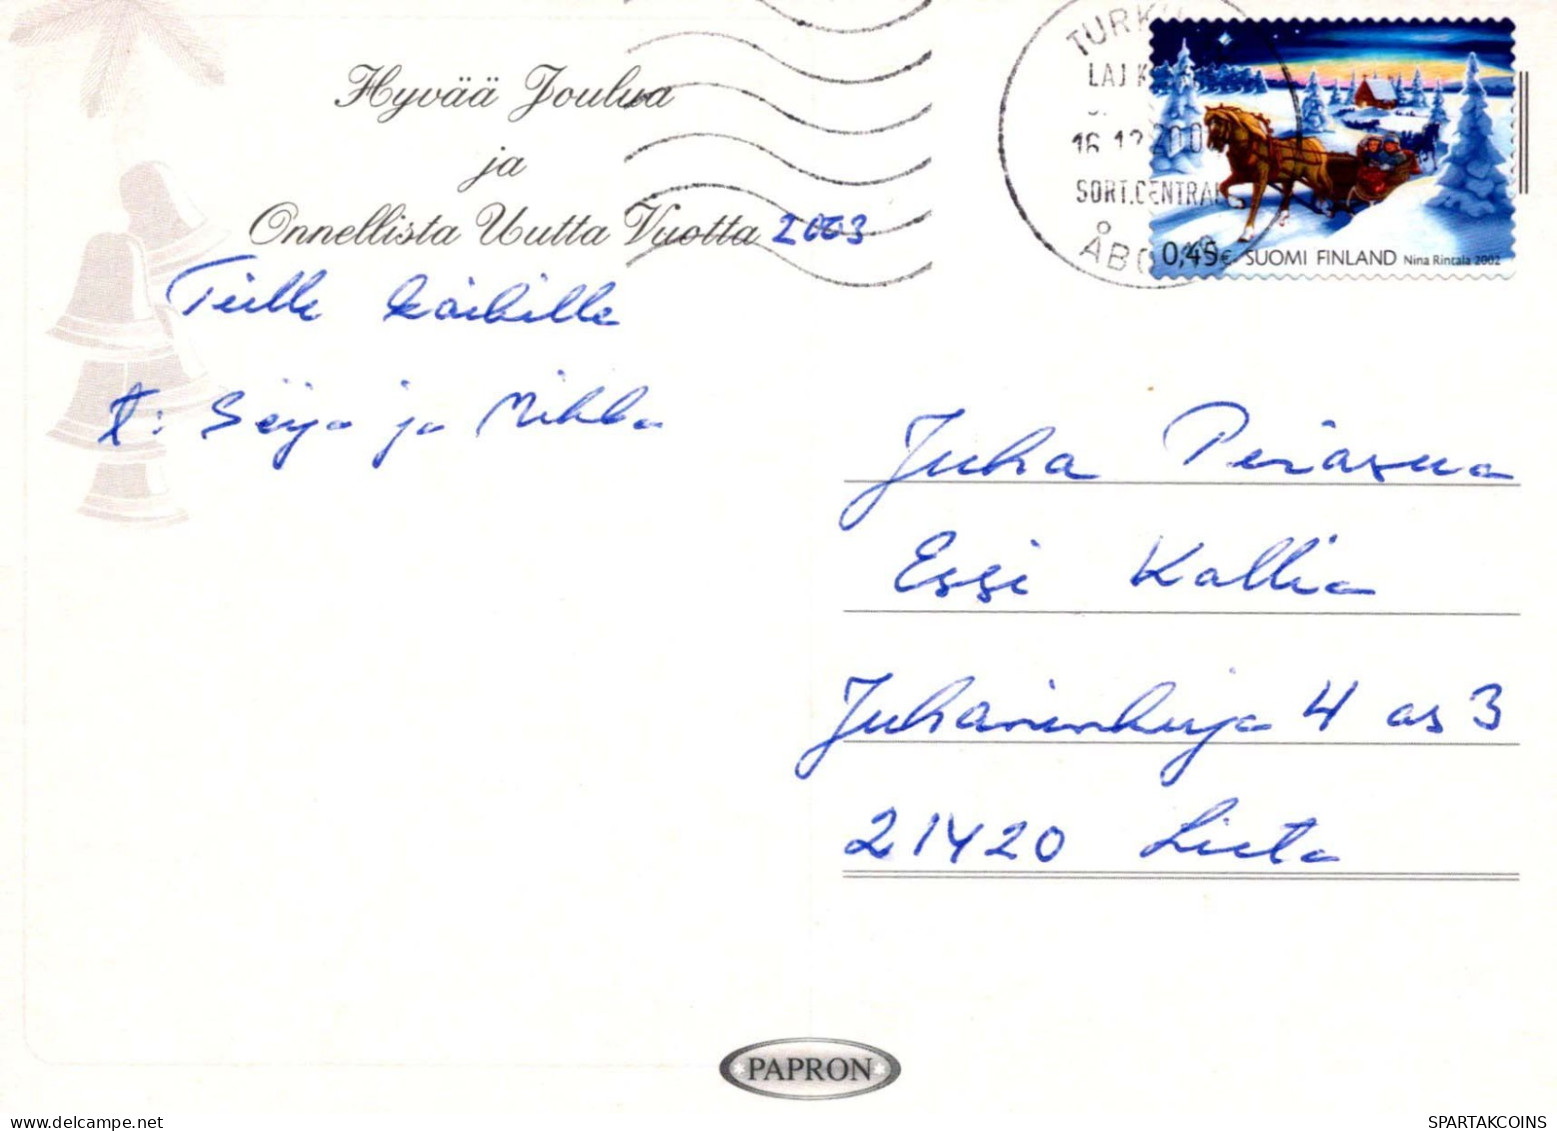 Hyvää Joulua
ja
Onnellista Uutta Vuotta 2003
Teille kaikille
t: Seija ja Mikko
TURKU
LAJ K
16.12.200
SORT.CENTRAL
ÅBO
0,45€ SUOMI FINLAND Nina Rintala 2002
Juha Periasuo
Essi Kallio
Juhaninkuja 4 as 3
21420 Lieto
PAPRON
SPARTAKCOINS